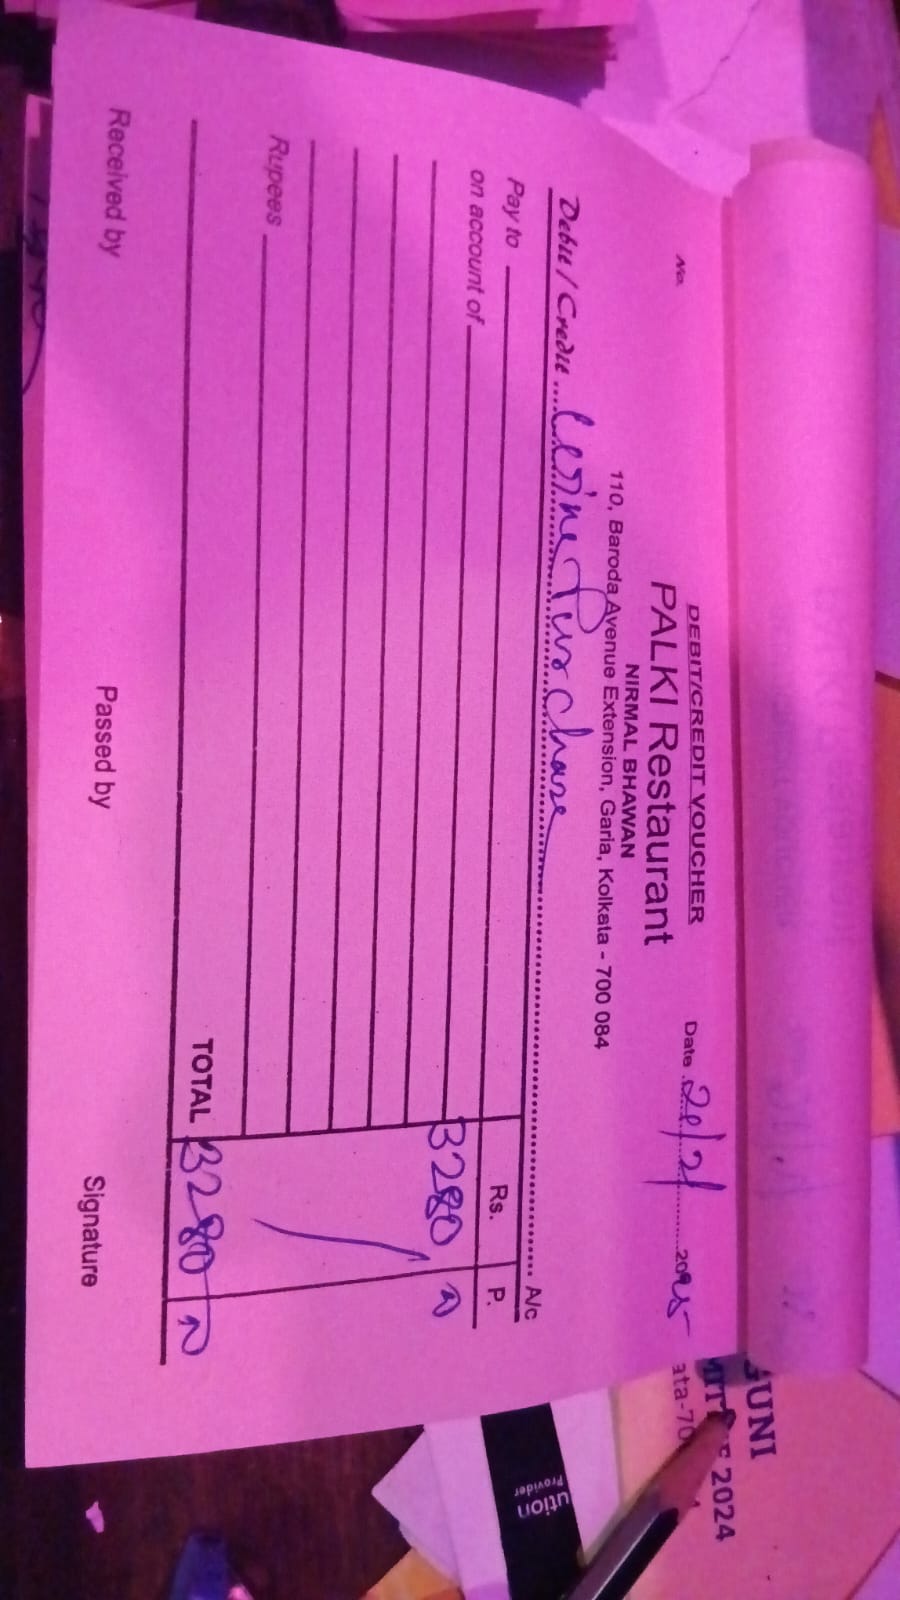 DEBIT/CREDIT VOUCHER
PALKI Restaurant
NIRMAL BHAWAN
110, Baroda Avenue Extension, Garia, Kolkata - 700 084
No.
Date 20/2/2025
Debit / Credit Wine Purchase A/c
Pay to
Rs. P.
on account of
3280
Rupees
TOTAL 3280
Received by Passed by Signature
GUNI
2024
ata-70
ution
Provider